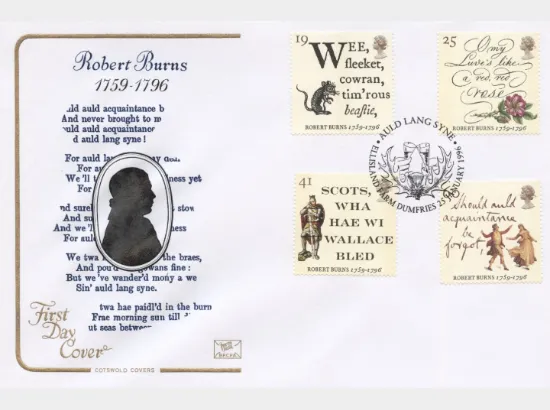 Robert Burns
1759-1796
uld auld acquaintance b
And never brought to m
uld auld acquaintance
d auld lang syne !
For auld la
For au
We'll t ness yet
For au
nd sure stow
And su
And we'll
For auld
We twa the braes,
And pou'd gowans fine :
But we've wander'd mony a we
Sin' auld lang syne.
twa hae paidl'd in the burn
Frae morning sun till
ut seas betwee
First
Day
Cover
COTSWOLD COVERS
19
WEE,
fleeket,
cowran,
tim'rous
beastie,
ROBERT BURNS 1759-1796
25
O my
Luve's like
a red, red
rose
ROBERT BURNS 1759-1796
• AULD LANG SYNE •
ELLISLAND FARM DUMFRIES 25 JANUARY 1996
41
SCOTS,
WHA
HAE WI
WALLACE
BLED
ROBERT BURNS 1759-1796
Should auld
acquaintance
be
forgot,
ROBERT BURNS 1759-1796